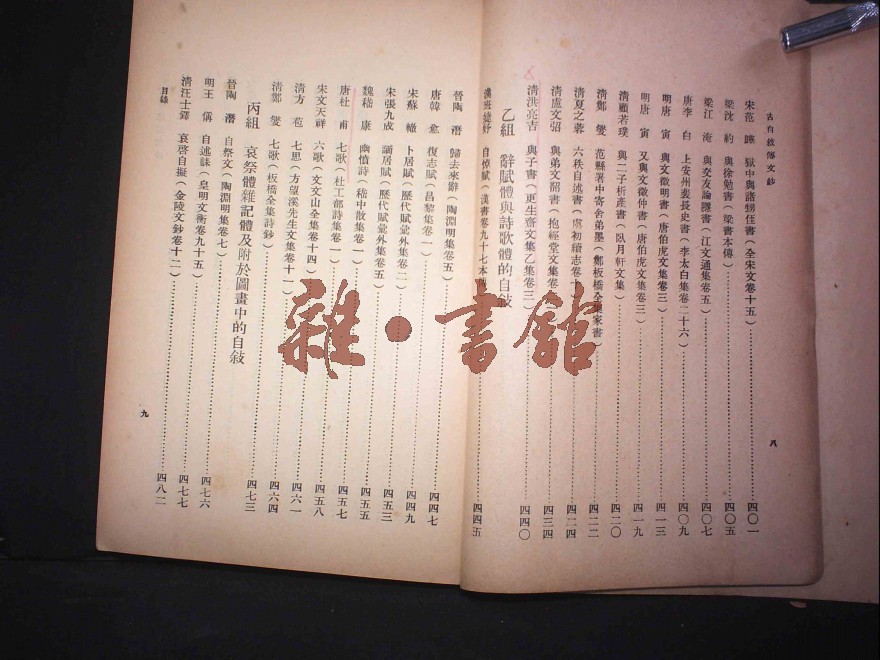 古自敘傳文鈔
八
宋范 曄 獄中與諸甥侄書(全宋文卷十五)四〇一
梁沈 約 與徐勉書(梁書本傳)四〇五
梁江 淹 與交友論隱書(江文通集卷五)四〇七
唐李 白 上安州裴長史書(李太白集卷二十六)四〇九
明唐 寅 與文徵明書(唐伯虎文集卷三)四一三
明唐 寅 又與文徵仲書(唐伯虎文集卷三)四一九
清顧若璞 與二子析產書(臥月軒文集)四二〇
清鄭 燮 范縣署中寄舍弟墨(鄭板橋全集家書)四二二
清夏之蓉 六秩自述書(虞初續志卷 四二四
清盧文弨 與弟文韶書(抱經堂文集卷 四三四
清洪亮吉 與子書(更生齋文集乙集卷三)四四〇
乙組 辭賦體與詩歌體的自敘
漢班婕妤 自悼賦(漢書卷九十七本 四四五
晉陶 潛 歸去來辭(陶淵明集卷五)四四七
唐韓 愈 復志賦(昌黎集卷一)
宋蘇 轍 卜居賦(歷代賦彙外集卷二)四四九
宋張九成 謫居賦(歷代賦彙外集卷五)四五三
魏嵇 康 幽憤詩(嵇中散集卷一)四五五
唐杜 甫 七歌(杜工部詩集卷一)四五七
宋文天祥 六歌(文文山全集卷十四)四五八
清方 苞 七思(方望溪先生文集卷十一)四六一
清鄭 燮 七歌(板橋全集詩鈔)四六四
丙組 哀祭體雜記體及附於圖畫中的自敘 四七三
晉陶 潛 自祭文(陶淵明集卷七)
明王 偁 自述誄(皇明文衡卷九十五)四七六
清汪士鐸 哀啓自擬(金陵文鈔卷十二)四七七
四八二
目錄
九
雜·書館